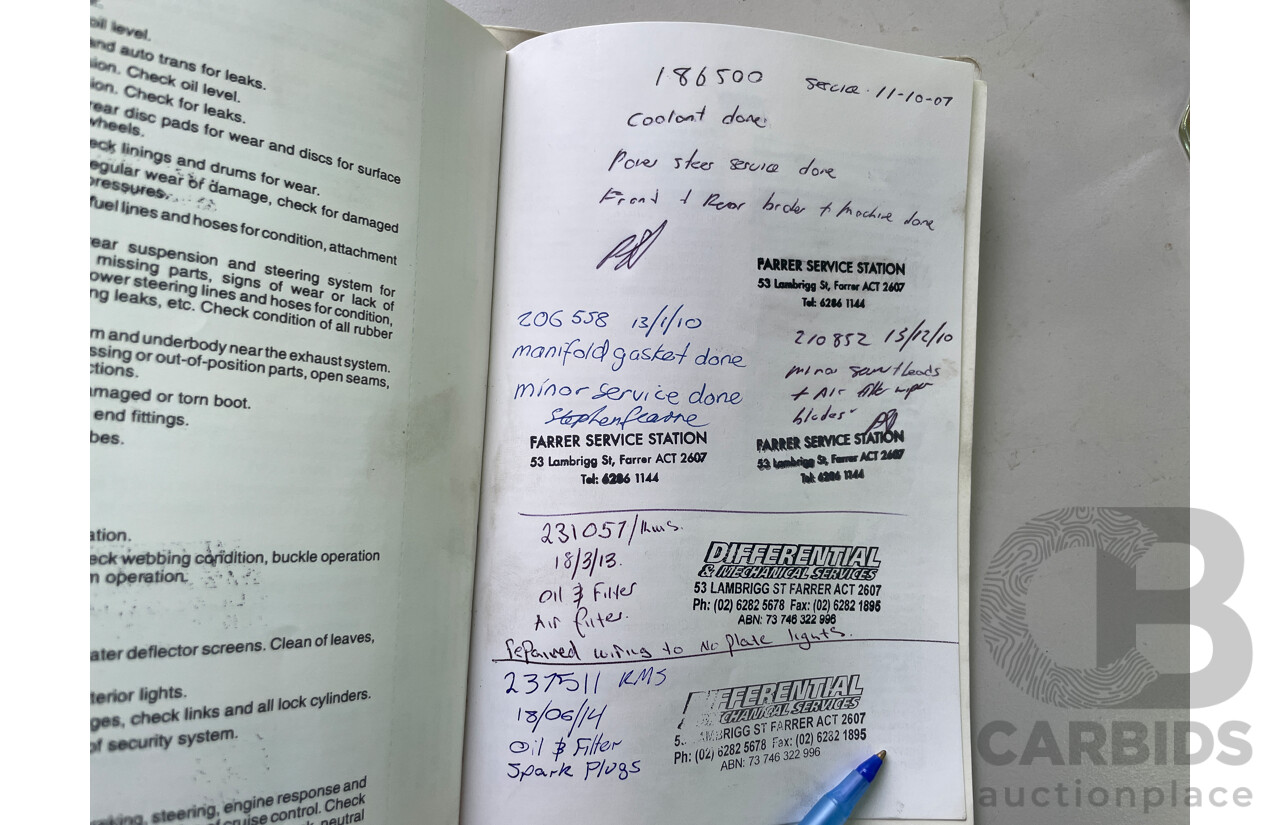 oil level.
and auto trans for leaks.
ion. Check oil level.
ion. Check for leaks.
rear disc pads for wear and discs for surface
wheels.
eck linings and drums for wear.
egular wear of damage, check for damaged
pressures.
fuel lines and hoses for condition, attachment
ear suspension and steering system for
missing parts, signs of wear or lack of
ower steering lines and hoses for condition,
ng leaks, etc. Check condition of all rubber
m and underbody near the exhaust system.
ssing or out-of-position parts, open seams,
ctions.
amaged or torn boot.
end fittings.
bes.
ation.
eck webbing condition, buckle operation
n operation.
ater deflector screens. Clean of leaves,
terior lights.
ges, check links and all lock cylinders.
of security system.
aking, steering, engine response and
of cruise control. Check
neutral
186500 Service. 11-10-07
Coolant done.
Power steer service done
Front & Rear & Machine done
FARRER SERVICE STATION
53 Lambrigg St, Farrer ACT 2607
Tel: 6286 1144
206 558 13/1/10
manifold gasket done
minor service done
FARRER SERVICE STATION
53 Lambrigg St, Farrer ACT 2607
Tel: 6286 1144
210852 15/12/10
minor leads
+ Air filter wiper
blades
FARRER SERVICE STATION
53 Lambrigg St, Farrer ACT 2607
Tel: 6286 1144
231057/kms.
18/3/13.
Oil & Filter
Air filter.
repaired wiring to No plate lights.
DIFFERENTIAL
& MECHANICAL SERVICES
53 LAMBRIGG ST FARRER ACT 2607
Ph: (02) 6282 5678 Fax: (02) 6282 1895
ABN: 73 746 322 996
237511 KMS
18/06/14
Oil & Filter
Spark Plugs
DIFFERENTIAL
& MECHANICAL SERVICES
5 LAMBRIGG ST FARRER ACT 2607
Ph: (02) 6282 5678 Fax: (02) 6282 1895
ABN: 73 746 322 996
CB
CARBIDS
auctionplace